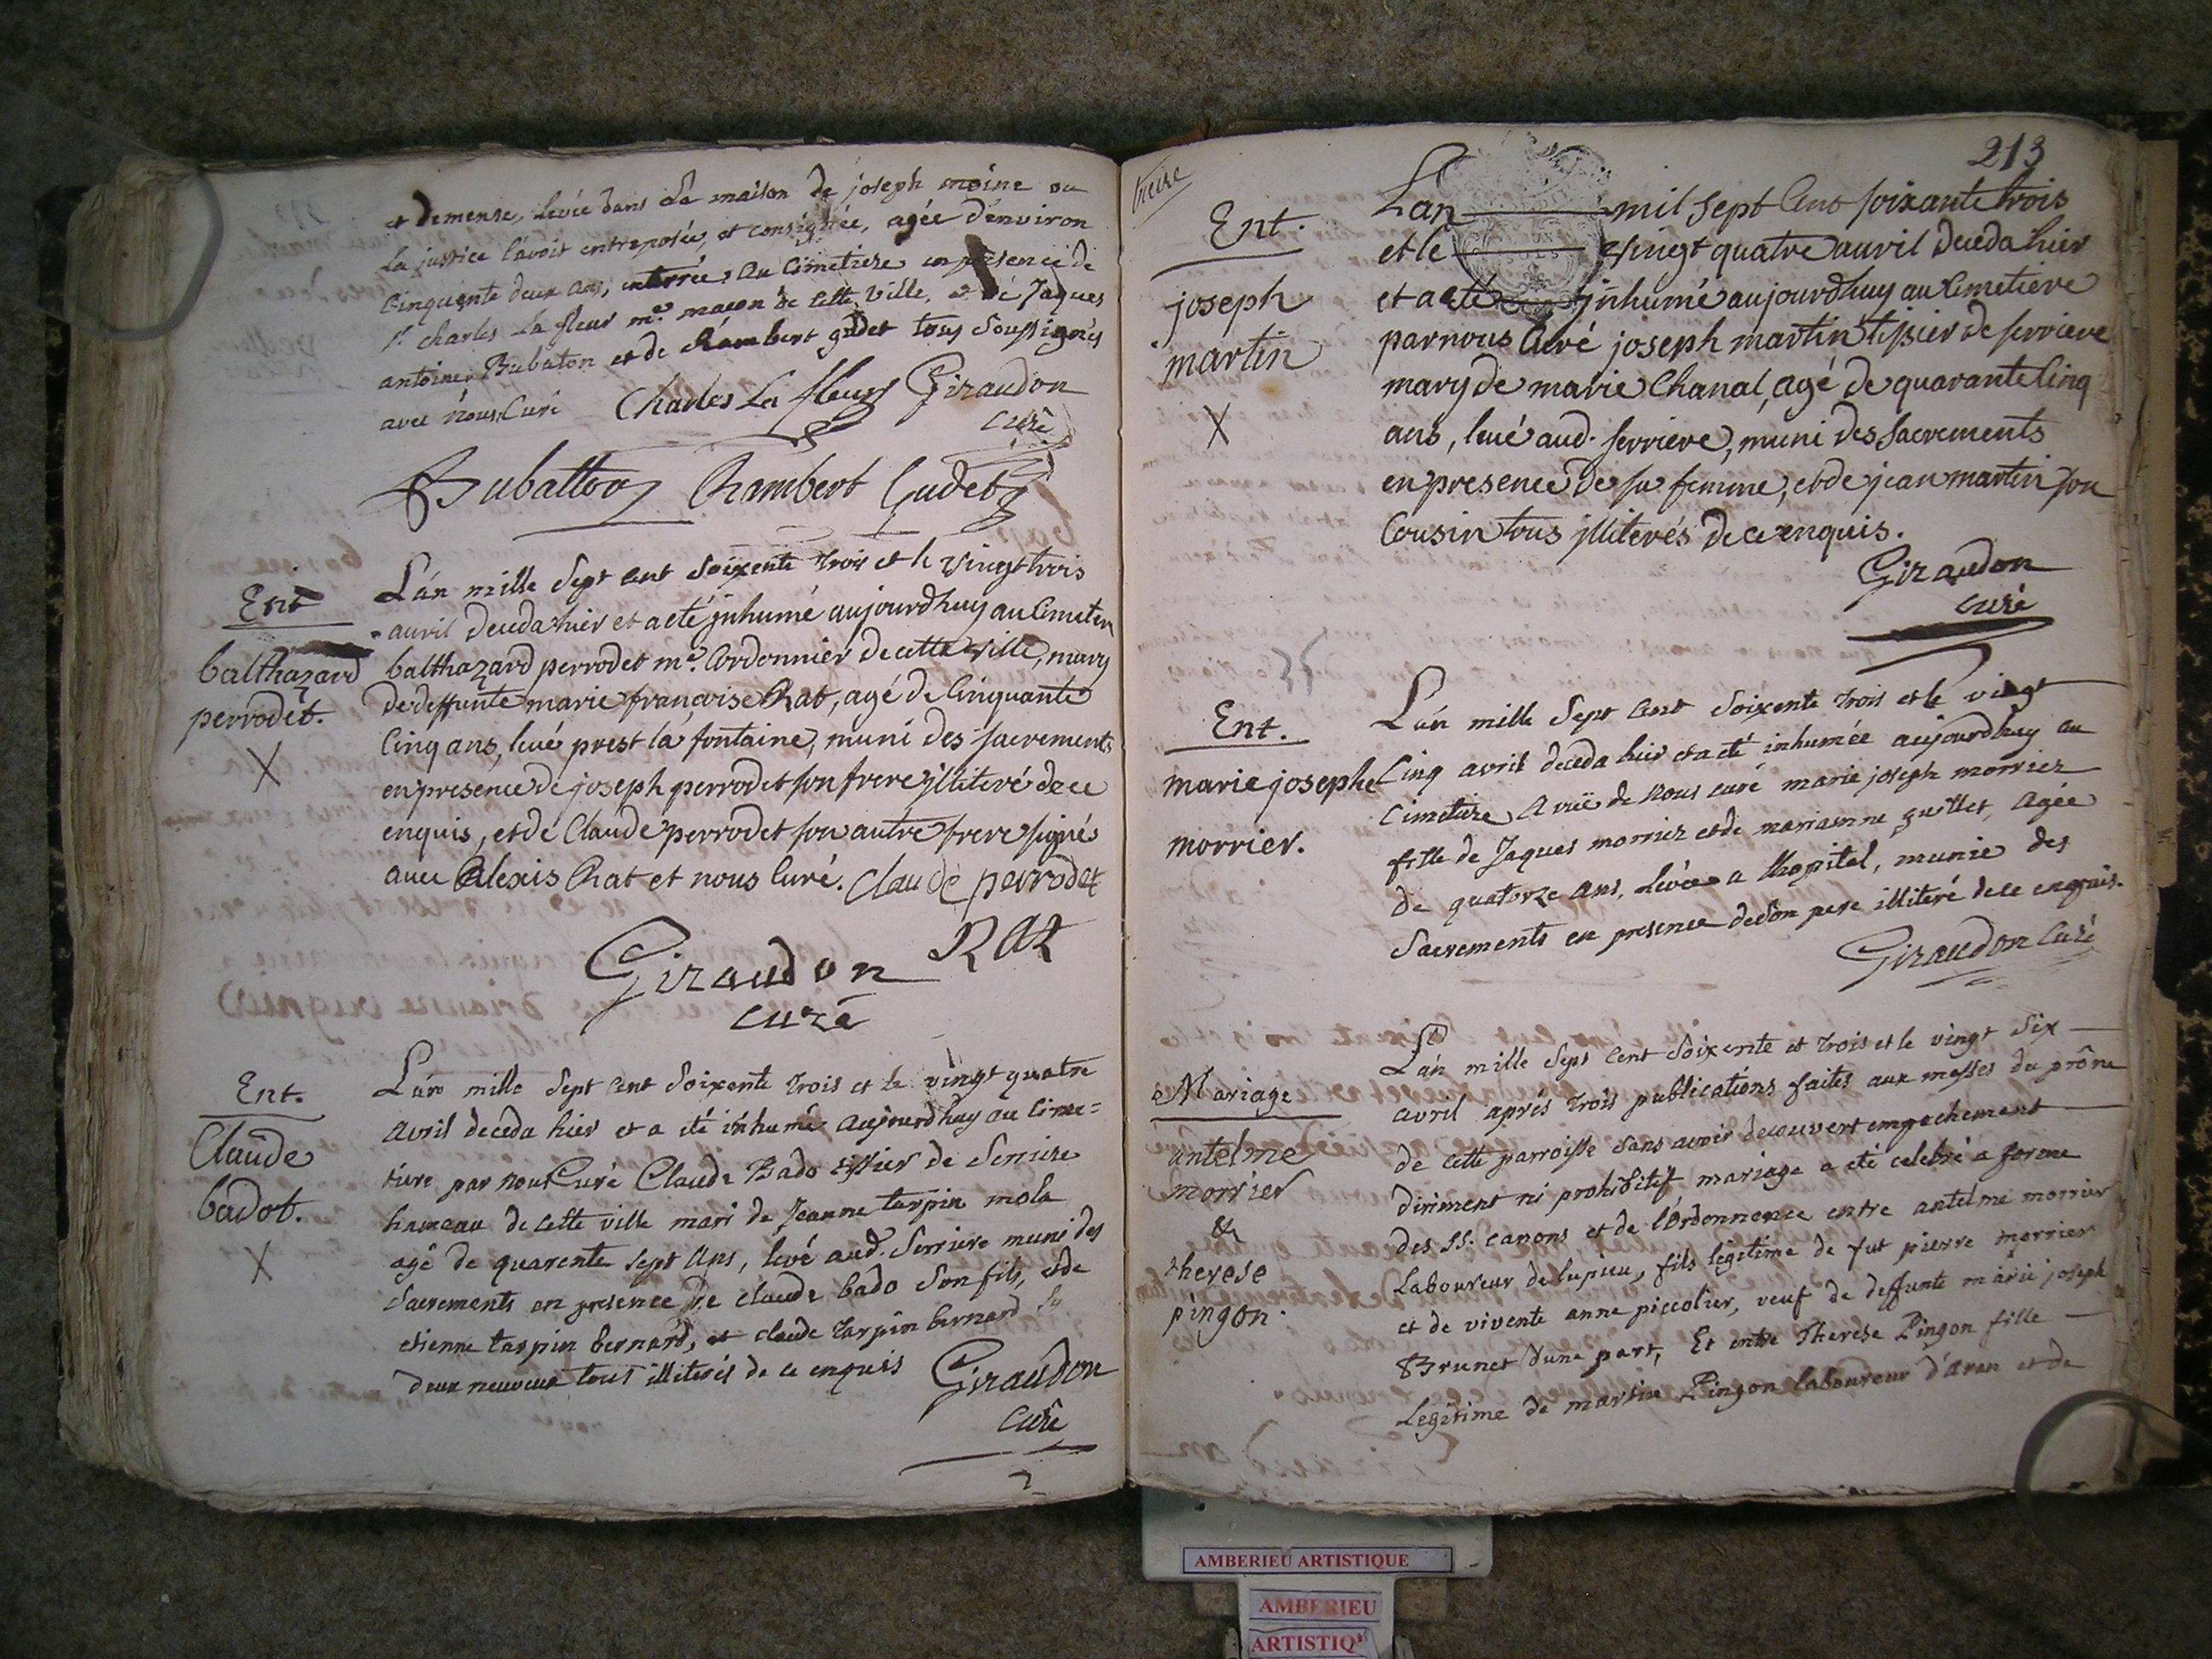 et demense, levée dans La maison de joseph moine ou
La justice l'avoit entreposée, et consignée, agée d'environ
Cinquente deux ans, enterrée au Cimetiere en présence de
Sr. Charles La fleur me. macon de Cette Ville, et de Jaques
antoine Bubaton et de Rambert gudet tous soussignés
avec nous Curé Charles La fleur Giraudon
Curé
Bubatton Rambert Gudet
Ent
balthazard
perrodet.
X
L'an mille sept cent soixente trois et le vingt trois
avril deceda hier et a eté jnhumé aujourdhuy au Cimetiere
balthazard perrodet me. Cordonnier de cette ville, mary
de deffunte marie francoise Rat, agé de Cinquante
Cinq ans, levé prest la fontaine, muni des sacrements
en presence de joseph perrodet son frere jlliteré de ce
enquis, et de Claude perrodet son autre frere signés
avec Alexis Rat et nous Curé. Claude perrodet
Giraudon RAt
curé
Ent.
Claude
badot.
X
L'an mille sept cent soixente trois et le vingt quatre
avril deceda hier et a été inhumé aujourdhuy au Cime=
tiere par nous Curé Claude Bado tissier de Serriere
hameau de Cette ville mari de Jeanne tarpin mola
agé de quarente sept ans, levé aud. Serriere muni des
Sacrements en presence de claude bado son fils, et de
etienne tarpin bernard, et claude tarpin bernard
deux neuveux tous illiterés de ce enquis Giraudon
Curé
213
Ent.
joseph
martin
X
Lan mil sept Cens soixante trois
et le vingt quatre avril deceda hier
et a eté jnhumé aujourdhuy au Cimetiere
par nous Curé joseph martin tissier de serriere
mary de marie Chanal, agé de quarante Cinq
ans, levé aud. serriere, muni des Sacrements
en presence de sa femme, et de jean martin son
Cousin tous jlliterés de ce enquis.
Giraudon
curé
35
Ent.
marie josephe
morrier.
L'an mille sept cent soixente trois et le vingt
Cinq avril deceda hier et a eté inhumée aujourdhuy au
Cimetiere a vuë de nous curé marie joseph morrier
fille de Jaques morrier et de marianne guillet, agée
de quatorze ans, levée a lhopital, munie des
Sacrements en presence de son pere illiteré de ce enquis.
Giraudon Curé
Mariage
antelme
morrier
&
therese
pingon.
L'an mille sept cent soixente et trois et le vingt six
avril aprés trois publications faites aux messes du prône
de cette parroisse sans avoir decouvert empechement
diriment ni prohibitif mariage a eté celebré a forme
des SS. canons et de l'Ordonnence entre antelme morrier
Laboureur de lupieu, fils legitime de fut pierre morrier
et de vivente anne piccolier, veuf de deffunte marie joseph
Brunet d'une part, Et entre Therese Pingon fille
Legitime de martin Pingon laboureur d'aran et de
AMBERIEU ARTISTIQUE
AMBERIEU
ARTISTIQ